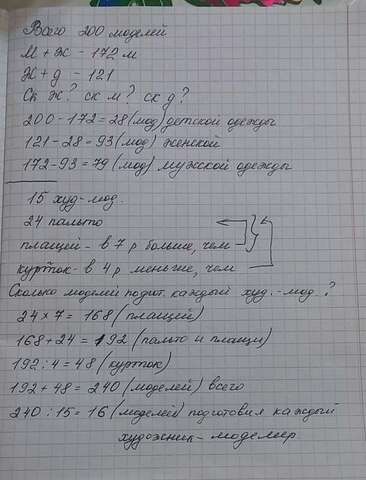 Всего 200 моделей
М + Ж - 172 м
Ж + д - 121
Ск ж? ск м? ск д?
200 - 172 = 28 (мод) детской одежды
121 - 28 = 93 (мод) женской
172 - 93 = 79 (мод) мужской одежды
15 худ-мод.
24 пальто
плащей - в 7 р больше, чем
курток - в 4 р меньше, чем
Сколько моделей подгот. каждый худ.-мод?
24 × 7 = 168 (плащей)
168 + 24 = 192 (пальто и плащи)
192 : 4 = 48 (курток)
192 + 48 = 240 (моделей) всего
240 : 15 = 16 (моделей) подготовил каждый
художник-модельер